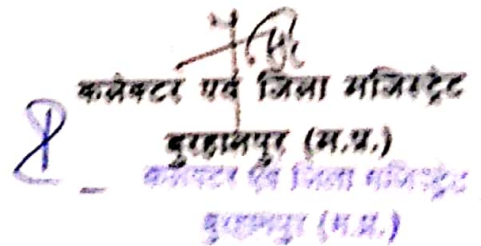 कलेक्टर एवं जिला मजिस्ट्रेट
बुरहानपुर (म.प्र.)
कलेक्टर एवं जिला मजिस्ट्रेट
बुरहानपुर (म.प्र.)